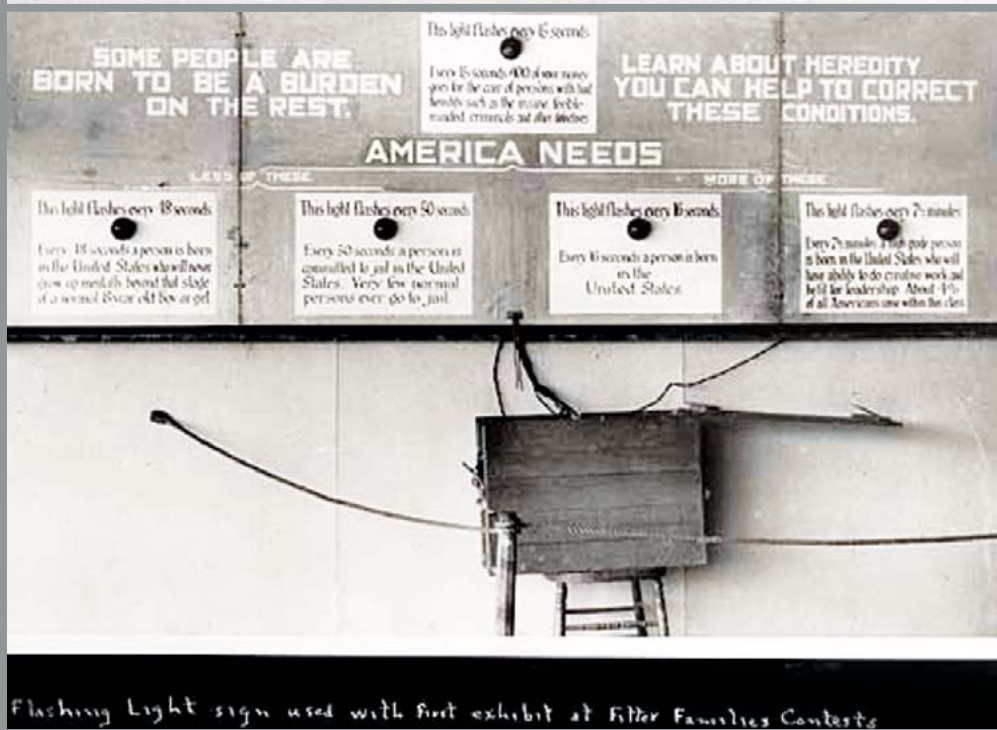 SOME PEOPLE ARE
BORN TO BE A BURDEN
ON THE REST.
This light flashes every 15 seconds
Every 15 seconds $100 of your money
goes for the care of persons with bad
heredity such as the insane, feeble-
minded, criminals and other defectives
LEARN ABOUT HEREDITY
YOU CAN HELP TO CORRECT
THESE CONDITIONS.
AMERICA NEEDS
LESS OF THESE
MORE OF THESE
This light flashes every 48 seconds
Every 48 seconds a person is born
in the United States who will never
grow up mentally beyond that stage
of a normal 8 year old boy or girl
This light flashes every 50 seconds
Every 50 seconds a person is
committed to jail in the United
States. Very few normal
persons ever go to jail
This light flashes every 16 seconds
Every 16 seconds a person is born
in the
United States
This light flashes every 7½ minutes
Every 7½ minutes a high grade person
is born in the United States who will
have ability to do creative work and
be fit for leadership. About 4%
of all Americans come within this class
Flashing Light sign used with first exhibit at Fitter Families Contests